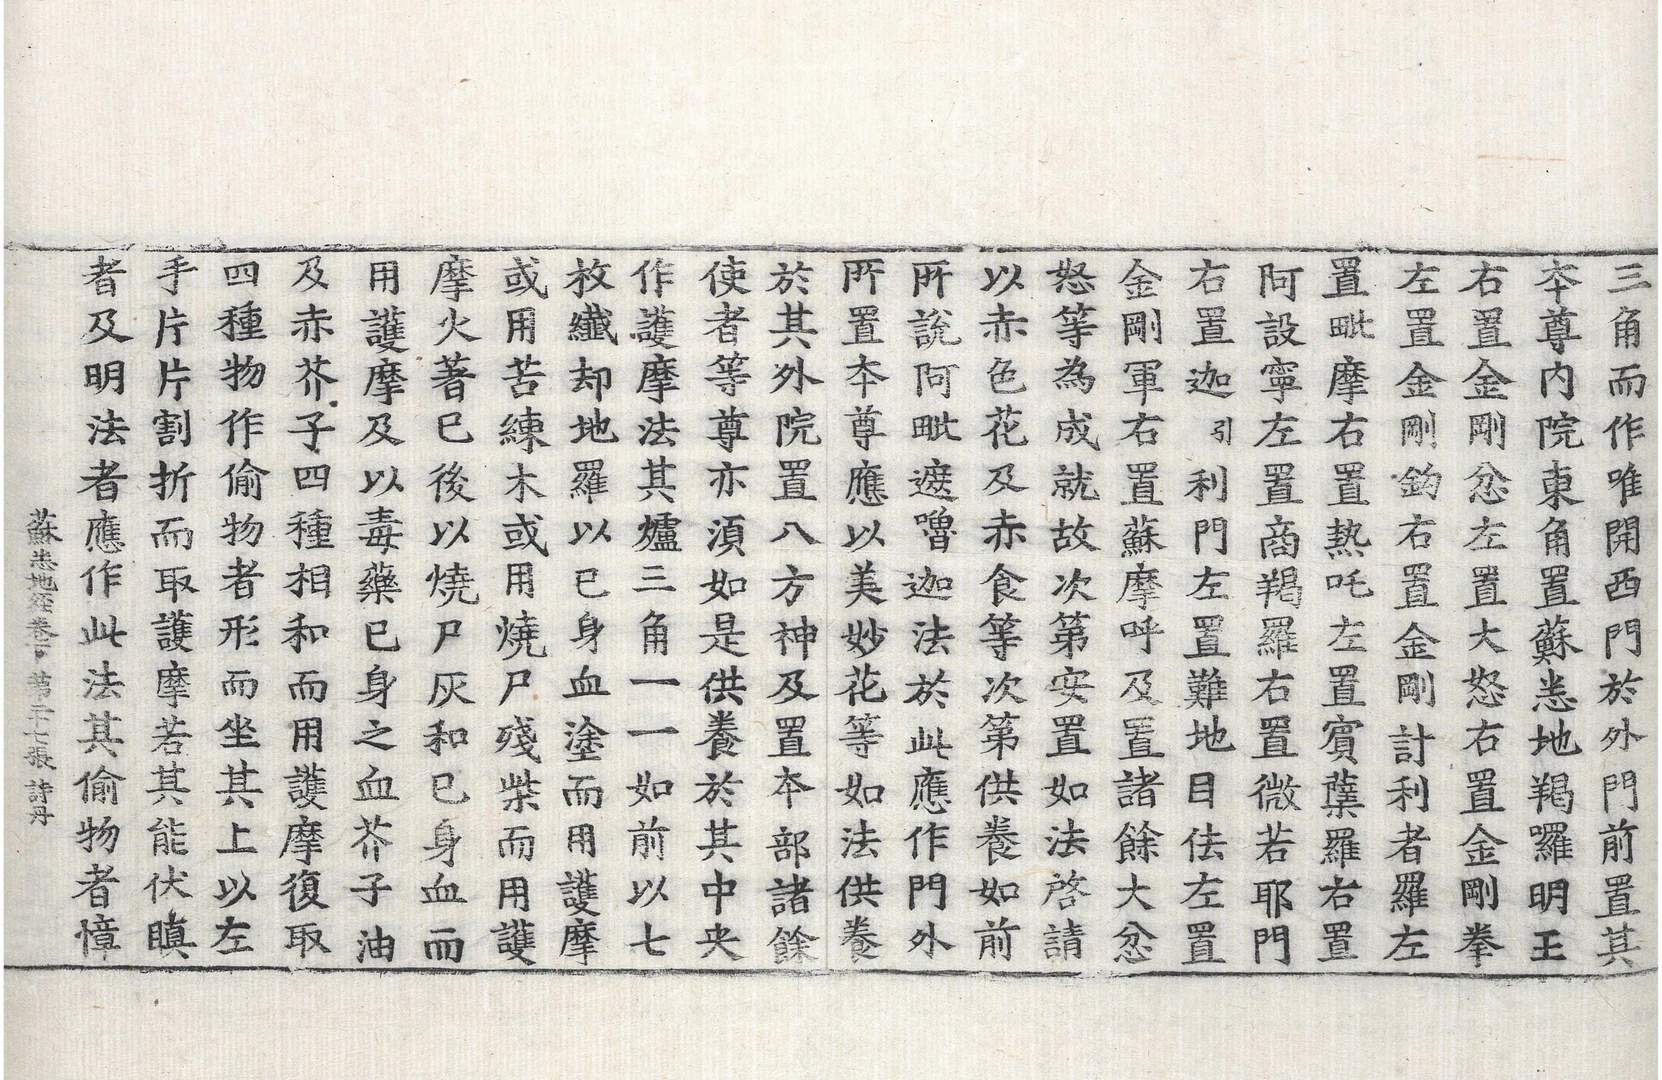 三角而作唯開西門於外門前置其
夲尊内院東角置蘇悉地羯囉明王
右置金剛忿左置大怒右置金剛拳
左置金剛鈎右置金剛計利者羅左
置毗摩右置熱吒左置賓蘖羅右置
阿設寧左置商羯羅右置微若耶門
右置迦引利門左置難地目佉左置
金剛軍右置蘇摩呼及置諸餘大忿
怒等為成就故次第安置如法啓請
以赤色花及赤食等次第供養如前
所說阿毗遮嚕迦法於此應作門外
所置夲尊應以美妙花等如法供養
於其外院置八方神及置夲部諸餘
使者等尊亦湏如是供養於其中央
作護摩法其爐三角一一如前以七
枚纖却地羅以己身血塗而用護摩
或用苦練木或用燒尸殘柴而用護
摩火著已後以燒尸灰和已身血而
用護摩及以毒藥已身之血芥子油
及赤芥子四種相和而用護摩復取
四種物作偷物者形而坐其上以左
手片片割折而取護摩若其能伏瞋
者及明法者應作此法其偷物者慞
蘇悉地經卷下 第二十七張 詩丹